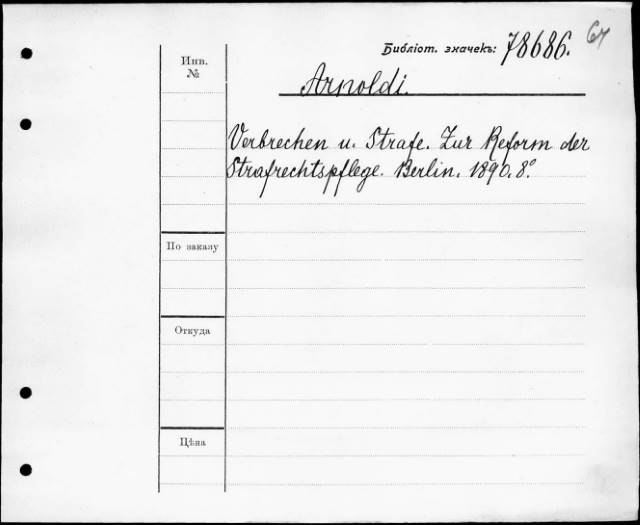 67
Библіот. значекъ: 78686.
Инв.
№
Arnoldi.
Verbrechen u. Strafe. Zur Reform der
Strafrechtspflege. Berlin. 1890. 8º.
По заказу
Откуда
Цѣна